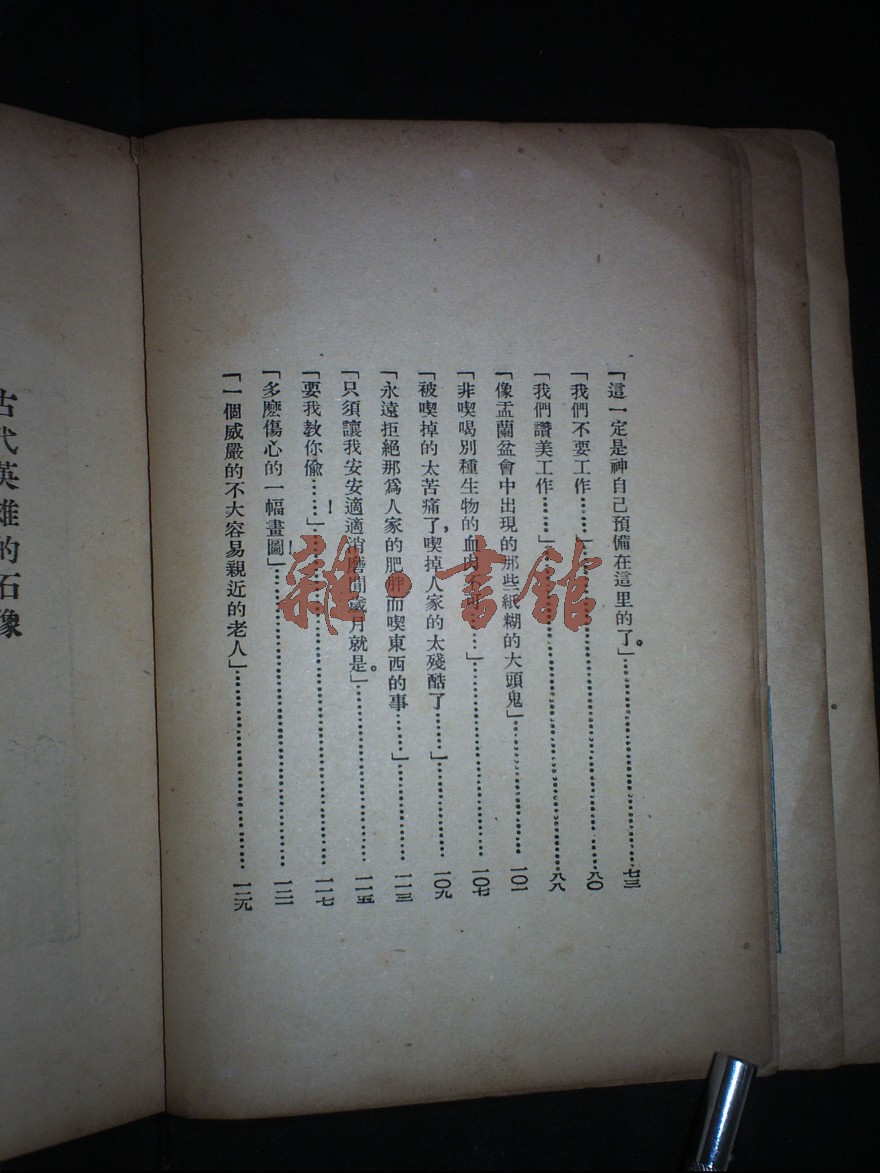 「這一定是神自己預備在這里的了。」……七三
「我們不要工作……」……八〇
「我們讚美工作……」……八八
「像盂蘭盆會中出現的那些紙糊的大頭鬼」……一〇一
「非喫喝別種生物的血肉不可……」……一〇七
「被喫掉的太苦痛了，喫掉人家的太殘酷了……」……一〇九
「永遠拒絕那爲人家的肥胖而喫東西的事……」……一一三
「只須讓我安安適適消磨閒歲月就是。」……一一五
「要我教你偷……！」……一一七
「多麽傷心的一幅畫圖！」……一二一
「一個威嚴的不大容易親近的老人」……一二九
古代英雄的石像
雜·書館